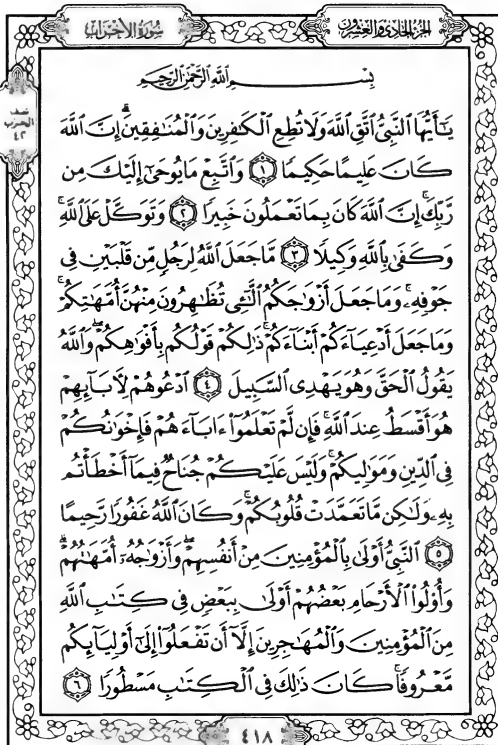 الجزء الحادي والعشرون
سورة الأحزاب
نصف
الحزب
٤٢
بِسْمِ اللَّهِ الرَّحْمَٰنِ الرَّحِيمِ
يَٰٓأَيُّهَا ٱلنَّبِيُّ ٱتَّقِ ٱللَّهَ وَلَا تُطِعِ ٱلْكَٰفِرِينَ وَٱلْمُنَٰفِقِينَۗ إِنَّ ٱللَّهَ
كَانَ عَلِيمًا حَكِيمًا ١ وَٱتَّبِعْ مَا يُوحَىٰٓ إِلَيْكَ مِن
رَّبِّكَۚ إِنَّ ٱللَّهَ كَانَ بِمَا تَعْمَلُونَ خَبِيرًا ٢ وَتَوَكَّلْ عَلَى ٱللَّهِۚ
وَكَفَىٰ بِٱللَّهِ وَكِيلًا ٣ مَّا جَعَلَ ٱللَّهُ لِرَجُلٍ مِّن قَلْبَيْنِ فِى
جَوْفِهِۦۚ وَمَا جَعَلَ أَزْوَٰجَكُمُ ٱلَّٰٓـِٔى تُظَٰهِرُونَ مِنْهُنَّ أُمَّهَٰتِكُمْۚ
وَمَا جَعَلَ أَدْعِيَآءَكُمْ أَبْنَآءَكُمْۚ ذَٰلِكُمْ قَوْلُكُم بِأَفْوَٰهِكُمْۖ وَٱللَّهُ
يَقُولُ ٱلْحَقَّ وَهُوَ يَهْدِى ٱلسَّبِيلَ ٤ ٱدْعُوهُمْ لِأٓبَآئِهِمْ
هُوَ أَقْسَطُ عِندَ ٱللَّهِۚ فَإِن لَّمْ تَعْلَمُوٓا۟ ءَابَآءَهُمْ فَإِخْوَٰنُكُمْ
فِى ٱلدِّينِ وَمَوَٰلِيكُمْۚ وَلَيْسَ عَلَيْكُمْ جُنَاحٌ فِيمَآ أَخْطَأْتُم
بِهِۦ وَلَٰكِن مَّا تَعَمَّدَتْ قُلُوبُكُمْۚ وَكَانَ ٱللَّهُ غَفُورًا رَّحِيمًا
٥ ٱلنَّبِىُّ أَوْلَىٰ بِٱلْمُؤْمِنِينَ مِنْ أَنفُسِهِمْۖ وَأَزْوَٰجُهُۥٓ أُمَّهَٰتُهُمْۗ
وَأُو۟لُوا۟ ٱلْأَرْحَامِ بَعْضُهُمْ أَوْلَىٰ بِبَعْضٍ فِى كِتَٰبِ ٱللَّهِ
مِنَ ٱلْمُؤْمِنِينَ وَٱلْمُهَٰجِرِينَ إِلَّآ أَن تَفْعَلُوٓا۟ إِلَىٰٓ أَوْلِيَآئِكُم
مَّعْرُوفًاۚ كَانَ ذَٰلِكَ فِى ٱلْكِتَٰبِ مَسْطُورًا ٦
٤١٨